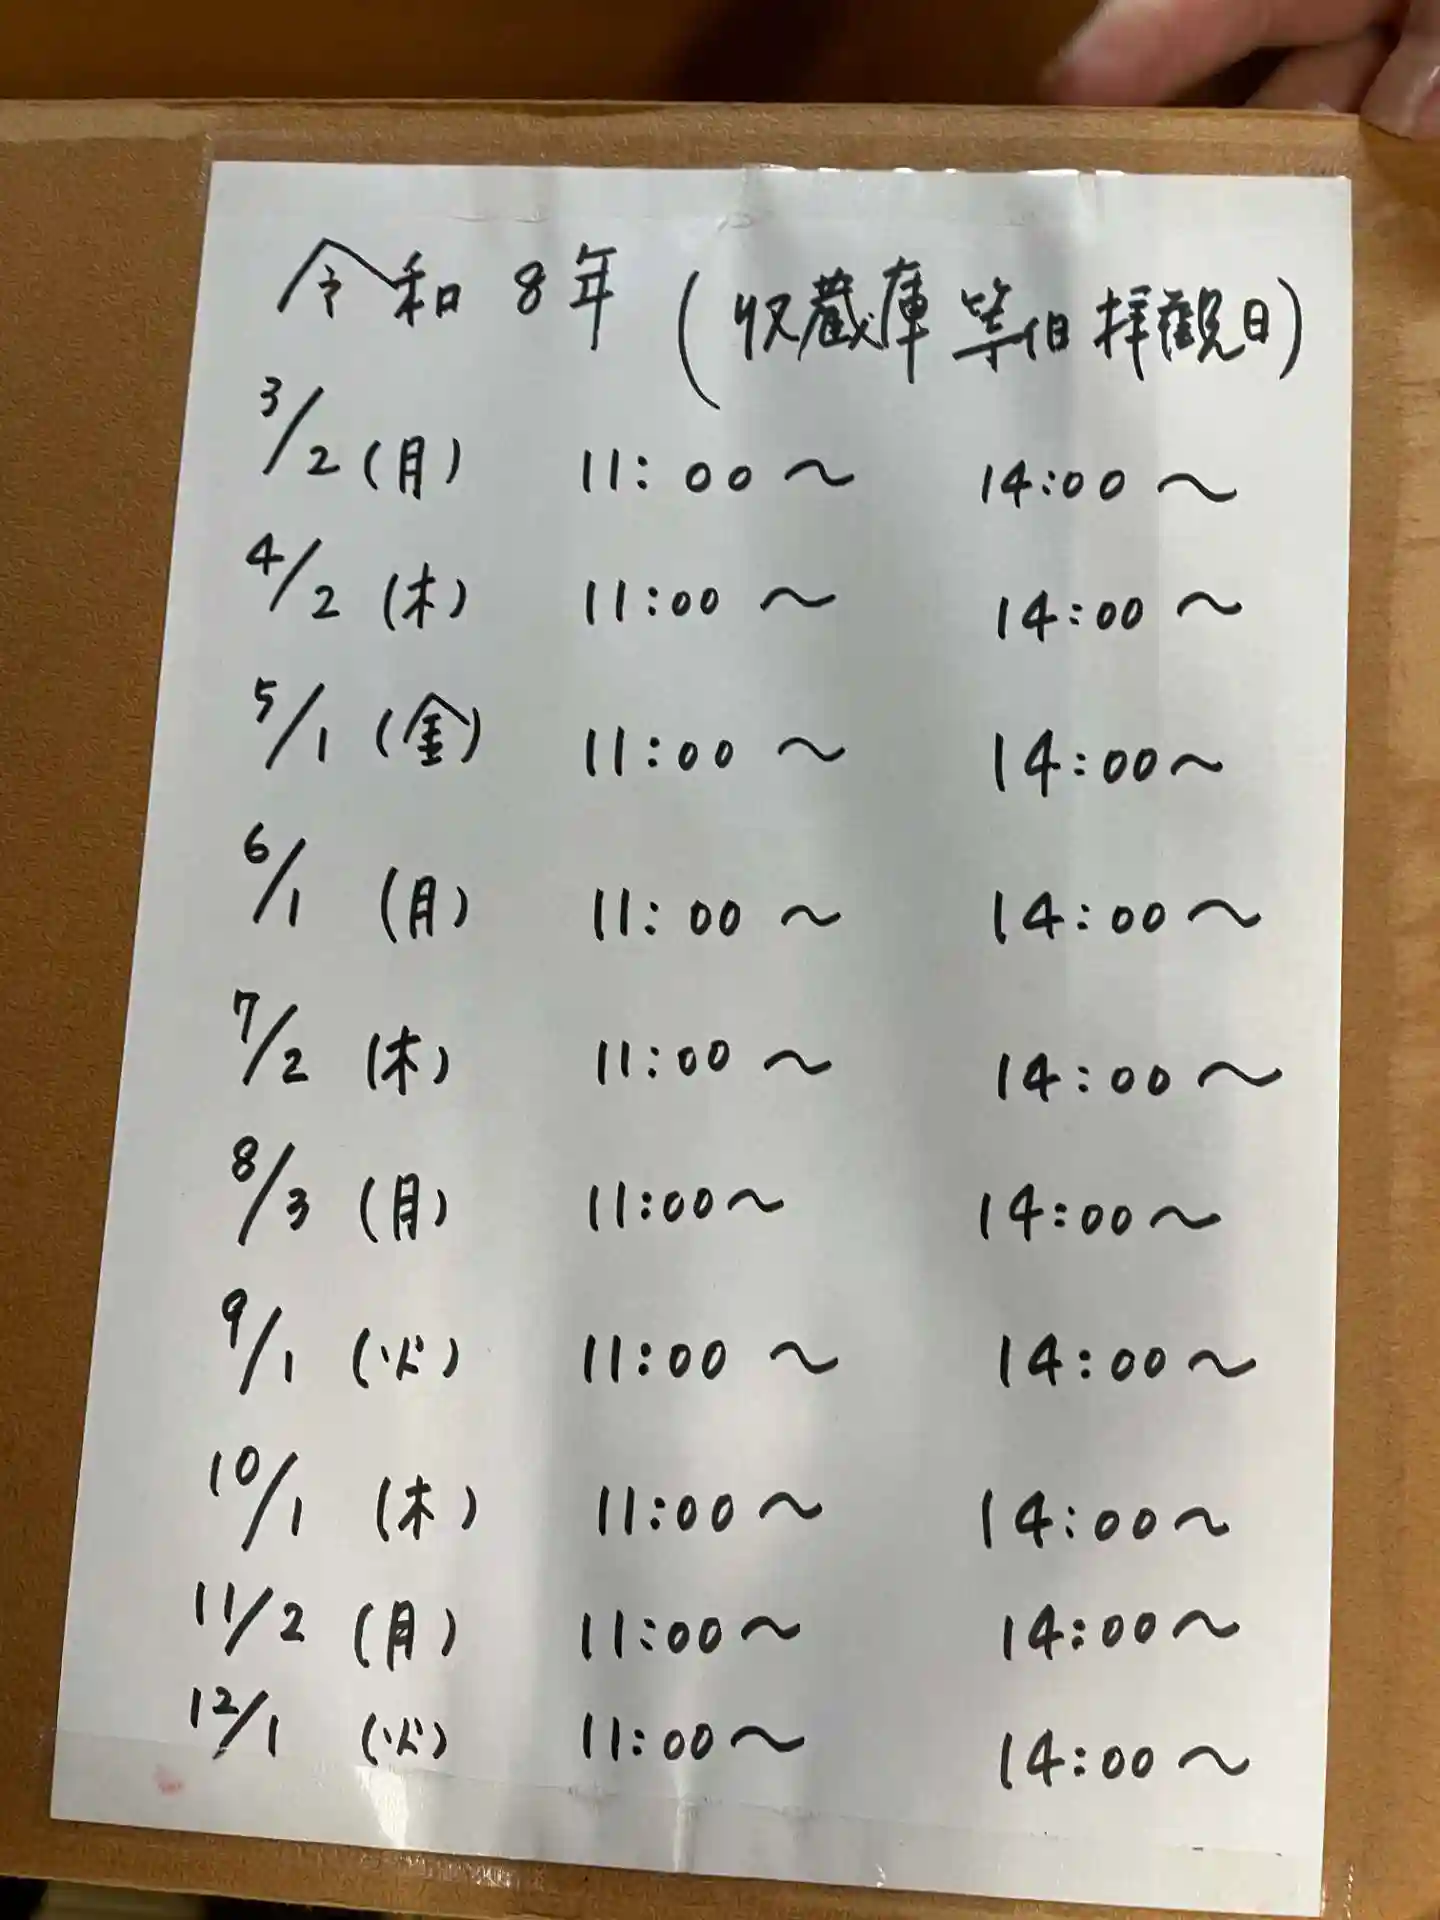 令和8年 (収蔵庫 等伯 拝観日)
3/2 (月) 11:00～ 14:00～
4/2 (木) 11:00～ 14:00～
5/1 (金) 11:00～ 14:00～
6/1 (月) 11:00～ 14:00～
7/2 (木) 11:00～ 14:00～
8/3 (月) 11:00～ 14:00～
9/1 (火) 11:00～ 14:00～
10/1 (木) 11:00～ 14:00～
11/2 (月) 11:00～ 14:00～
12/1 (火) 11:00～ 14:00～